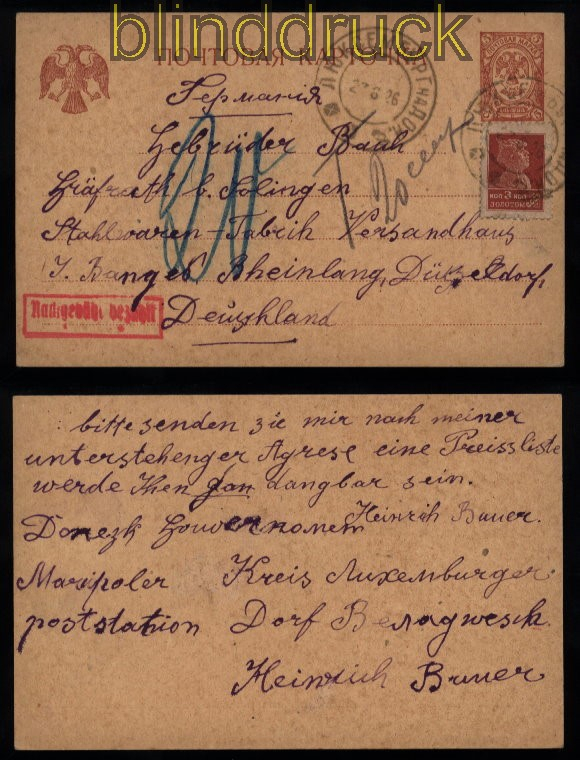 blinddruck
ПОЧТОВАЯ КАРТОЧКА
Германія
Gebrüder Bauh
Gräfrath b. Solingen
Stahlvaren-Fabrik Versandhaus
J. Banges Rheinlang, Düzseldorf,
Deuzhland
Nachgebühr bezahlt
27 6 26
КОП 3 КОП
ЗОЛОТОМ
bitte senden zie mir nach meiner
unterstehenger Agrese eine Preissliste
werde Ihen dangbar sein.
Heinrich Bauer.
Donezk Gouvernoment
Maripoler Kreis Luxemburger
poststation Dorf Belagwesch.
Heinrich Bauer